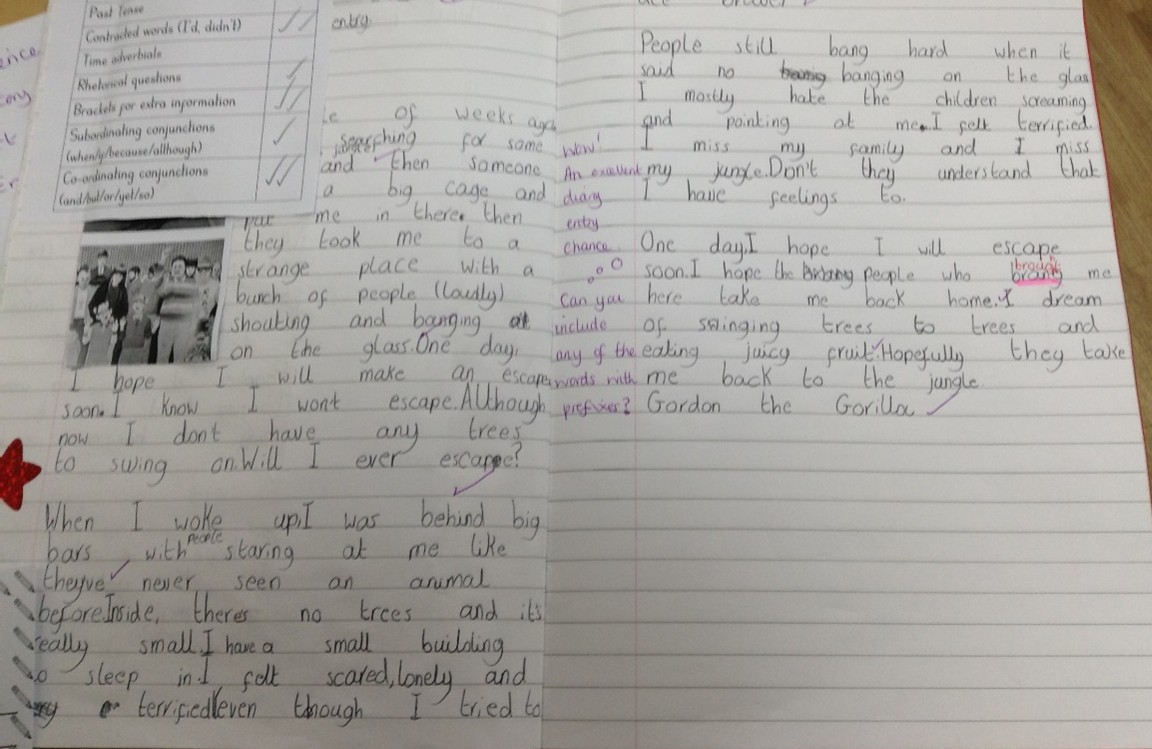 Past Tense
Contracted words (I'd, didn't)
Time adverbials
Rhetorical questions
Brackets for extra information
Subordinating conjunctions
(when/if/because/although)
Co-ordinating conjunctions
(and/but/or/yet/so)
entry
of weeks ago
searching for some
and then someone
a big cage and
put me in there. then
they took me to a
strange place with a
bunch of people (loudly)
shouting and banging
on the glass. One day,
I hope I will make an escape
soon. I know I wont escape. Although
now I dont have any trees
to swing on. Will I ever escape?
When I woke up, I was behind big
bars with people staring at me like
theyve never seen an animal
before. Inside, theres no trees and it's
really small. I have a small building
sleep in. I felt scared, lonely and
terrified even though I tried to
Wow!
An excellent
diary
entry
chance
Can you
include
any of the
words with
prefixes?
People still bang hard when it
said no banging on the glas
I mostly hate the children screaming
and pointing at me. I felt terrified.
I miss my family and I miss
my jungle. Don't they understand that
I have feelings to.
One day, I hope I will escape
soon. I hope the people who brought me
here take me back home. I dream
of swinging trees to trees and
eating juicy fruit. Hopefully they take
me back to the jungle
Gordon the Gorilla